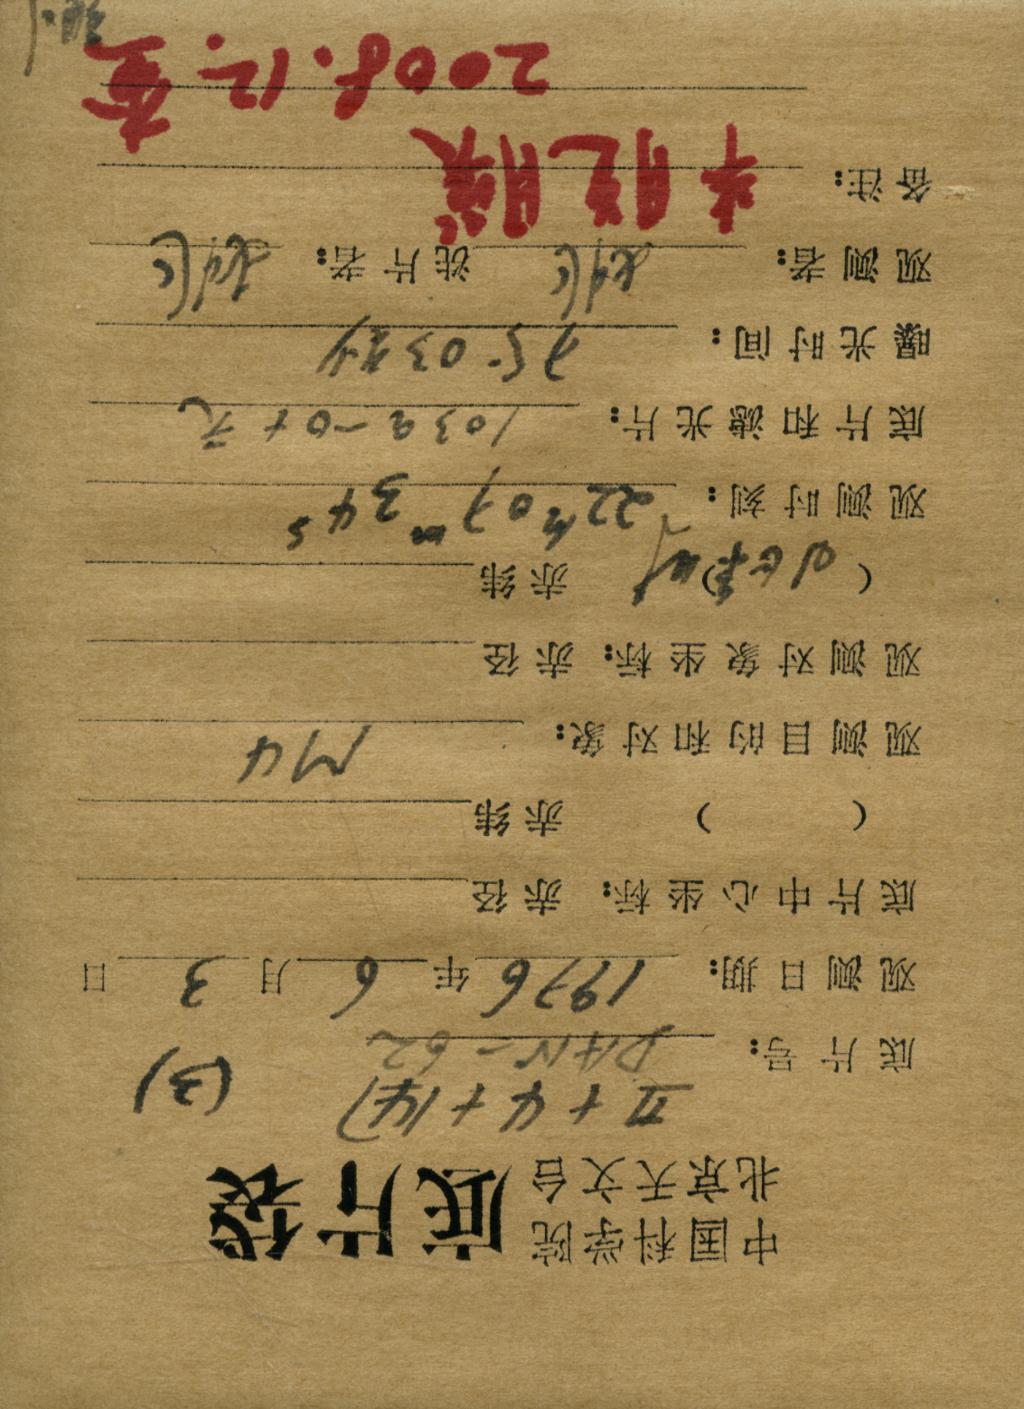 中国科学院
北京天文台
底片袋
II+4+14) (3)
底片号: DAN-62
观测日期: 1976年6月3日
底片中心坐标: 赤径
( ) 赤纬
观测目的和对象: M4
观测对象坐标: 赤径
( ) 赤纬
北京时
观测时刻: 22h07m34s
底片和滤光片: 103a-O+无
曝光时间: 75.03
观测者: 洗片者:
备注: 未脱膜
2008.12.查